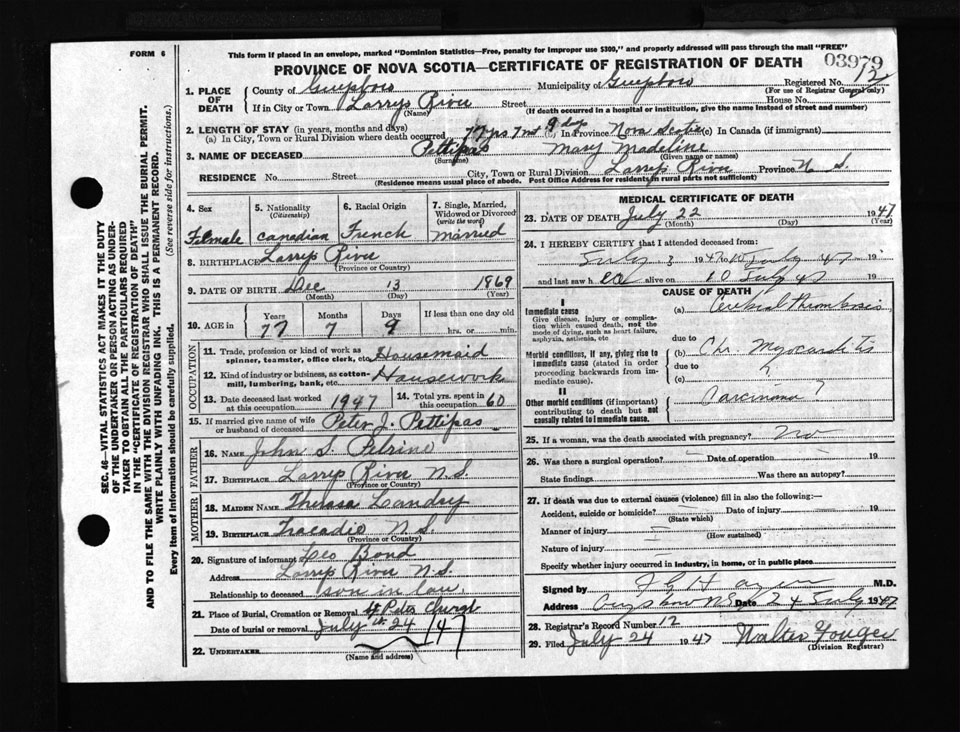 FORM 6
This form if placed in an envelope, marked "Dominion Statistics—Free, penalty for improper use $300," and properly addressed will pass through the mail "FREE"
PROVINCE OF NOVA SCOTIA—CERTIFICATE OF REGISTRATION OF DEATH
03979
1. PLACE OF DEATH
County of Municipality of Registered No. 12
(For use of Registrar General only)
If in City or Town Larrys River Street House No.
(Name) (If death occurred in a hospital or institution, give the name instead of street and number)
2. LENGTH OF STAY (in years, months and days)
(a) In City, Town or Rural Division where death occurred 77 yrs 7 m 9 dys In Province Nova Scotia (c) In Canada (if immigrant)
3. NAME OF DECEASED Pettipas Mary Madeline
(Surname) (Given name or names)
RESIDENCE No. Street City, Town or Rural Division Larrys River Province N S.
(Residence means usual place of abode. Post Office Address for residents in rural parts not sufficient)
4. Sex
Filmale
5. Nationality
(Citizenship)
Canadian
6. Racial Origin
French
7. Single, Married, Widowed or Divorced
(write the word)
married
8. BIRTHPLACE Larrys River
(Province or Country)
9. DATE OF BIRTH Dec 13 1969
(Month) (Day) (Year)
10. AGE in
Years Months Days If less than one day old
77 7 9 hrs. or min.
OCCUPATION
11. Trade, profession or kind of work as spinner, teamster, office clerk, etc. Housemaid
12. Kind of industry or business, as cotton-mill, lumbering, bank, etc. Housework
13. Date deceased last worked at this occupation 1947
14. Total yrs. spent in this occupation 60
15. If married give name of wife or husband of deceased Peter J. Pettipas
FATHER
16. NAME John S. Pelrine
17. BIRTHPLACE Larrys River N.S.
(Province or Country)
MOTHER
18. MAIDEN NAME Theresa Landry
19. BIRTHPLACE Tracadie N.S.
(Province or Country)
20. Signature of informant Leo Bond
Address Larrys River N.S.
Relationship to deceased son in law
21. Place of Burial, Cremation or Removal St Peter Church
Date of burial or removal July 24 /47
22. UNDERTAKER
(Name and address)
MEDICAL CERTIFICATE OF DEATH
23. DATE OF DEATH July 22 1947
(Month) (Day) (Year)
24. I HEREBY CERTIFY that I attended deceased from:
July 3 1947 to July 47 19
and last saw h alive on 10 July 47 19
CAUSE OF DEATH
I
Immediate cause
Give disease, injury or complication which caused death, not the mode of dying, such as heart failure, asphyxia, asthenia, etc
(a) Cerebral thrombosis
due to
Morbid conditions, if any, giving rise to immediate cause (stated in order proceeding backwards from immediate cause).
(b) Chr. Myocarditis
due to
(c)
II
Other morbid conditions (if important) contributing to death but not causally related to immediate cause.
Carcinoma ?
25. If a woman, was the death associated with pregnancy? No
26. Was there a surgical operation? — Date of operation — 19
State findings Was there an autopsy?
27. If death was due to external causes (violence) fill in also the following:—
Accident, suicide or homicide? Date of injury 19
(State which)
Manner of injury
(How sustained)
Nature of injury
Specify whether injury occurred in industry, in home, or in public place
Signed by M.D.
Address N.S. Date 24 July 1947
28. Registrar's Record Number 12
29. Filed July 24 1947 Walter Fougere
(Division Registrar)
SEC. 46—VITAL STATISTICS ACT MAKES IT THE DUTY
OF THE UNDERTAKER OR PERSON ACTING AS UNDER-
TAKER TO OBTAIN ALL THE PARTICULARS REQUIRED
IN THE "CERTIFICATE OF REGISTRATION OF DEATH"
AND TO FILE THE SAME WITH THE DIVISION REGISTRAR WHO SHALL ISSUE THE BURIAL PERMIT.
WRITE PLAINLY WITH UNFADING INK. THIS IS A PERMANENT RECORD.
Every item of information should be carefully supplied. (See reverse side for instructions.)